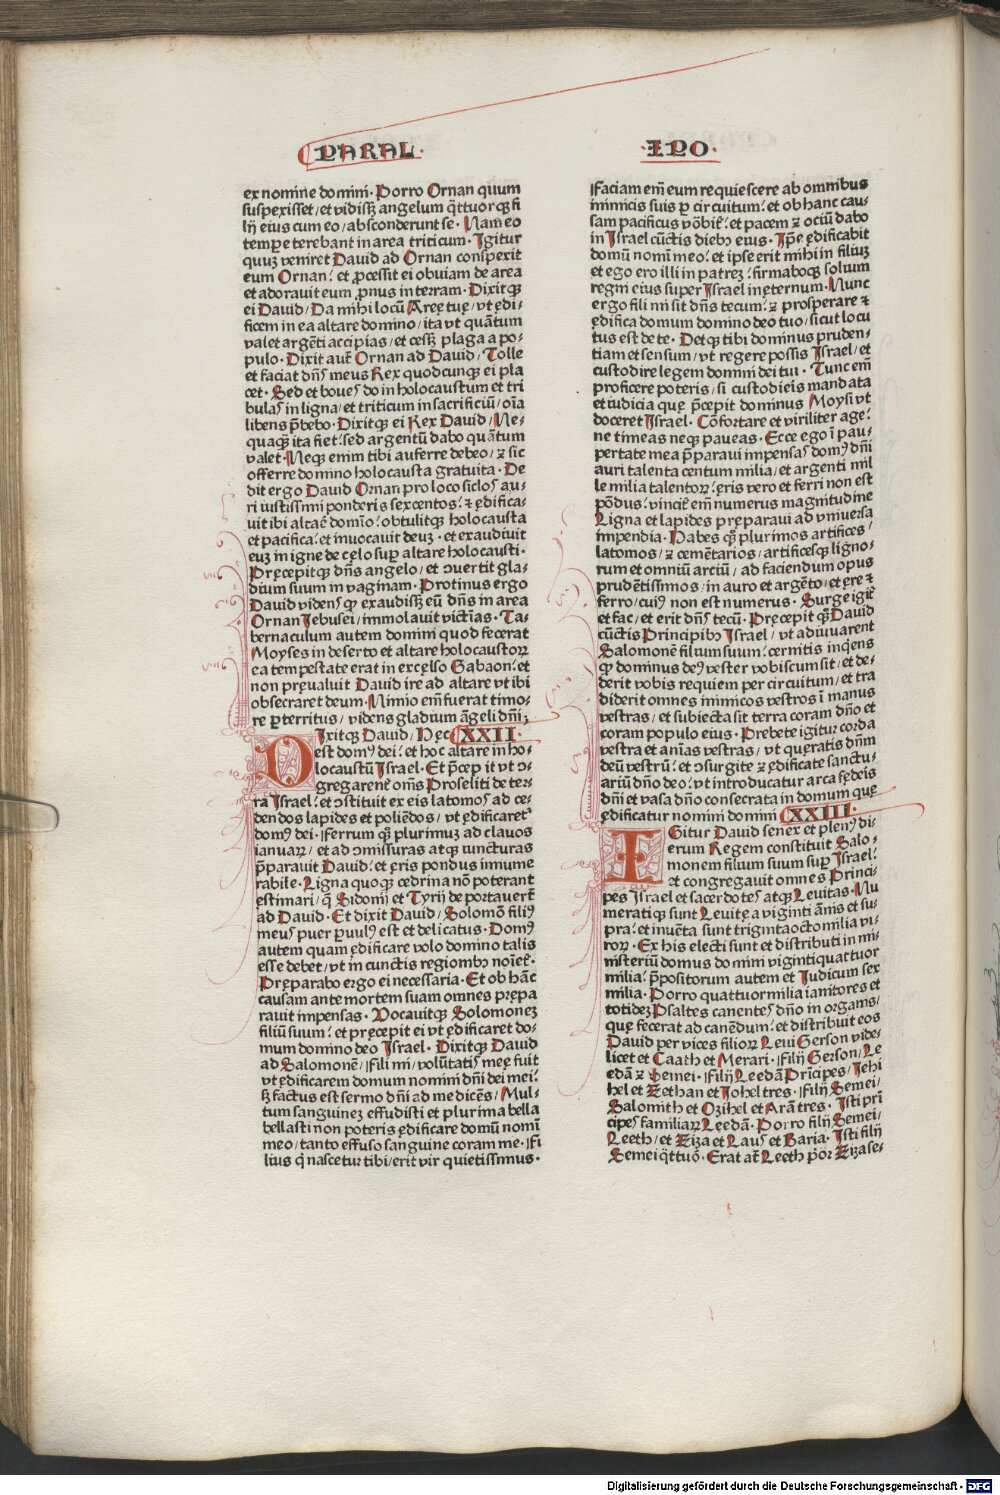 PARAL · IPO ·
ex nomine domini · Porro Ornan quum
suspexisset / et vidissꝫ angelum q̈ttuorqꝫ fi
lij eius cum eo / absconderunt se · Nam eo
tempore terebant in area triticum · Igitur
quuꝫ veniret David ad Ornan conspexit
eum Ornan : et ꝓcessit ei obviam de area
et adoravit eum ꝓnus in terram · Dixitqꝫ
ei David / Da mihi locū Areę tuę / vt ędi-
ficem in ea altare domino / ita vt quātum
valet argēti accipias / et cessꝫ plaga a po-
pulo · Dixit aut̄ Ornan ad David / Tolle
et faciat dn̄s meus Rex quodcunqꝫ ei pla
cet · Sed et boves do in holocaustum et tri
bulas in ligna / et triticum in sacrificiū / oīa
libens p̄bebo · Dixitqꝫ ei Rex David / Ne-
quaqꝫ ita fiet : sed argentū dabo quātum
valet · Neqꝫ enim tibi auferre debeo / ⁊ sic
offerre domino holocausta gratuita · De
dit ergo David Ornan pro loco siclos au-
ri iustissimi ponderis sexcentos : ⁊ ędifica-
vit ibi altare domīo : obtulitqꝫ holocausta
et pacifica : et invocavit deuꝫ · et exaudivit
euꝫ in igne de cęlo suꝑ altare holocausti ·
Pręcepitqꝫ dn̄s angelo / et ↄvertit gla-
dium suum in vaginam · Protinus ergo
David videns qꝙ exaudissꝫ eū dn̄s in area
Ornan Jebusei / immolavit victīas · Ta-
bernaculum autem domini quod fecerat
Moyses in deserto et altare holocaustoꝝ
ea tempestate erat in excelso Gabaon : et
non pręvaluit David ire ad altare vt ibi
obsecraret deum · Nimio em̄ fuerat timo-
re ꝑterritus / videns gladium āgeli dn̄i ;
Dixitqꝫ David / Hec XXII ·
est domꝰ dei : et hoc altare in ho-
locaustū Israel · Et p̄cepit vt ↄ-
gregarent̄ om̄s Proseliti de ter-
ra Israel : et ↄstituit ex eis latomos ad cę-
dendos lapides et poliēdos / vt ędificaret̄
domꝰ dei · Ferrum qꝫ plurimuꝫ ad clavos
ianuaꝝ / et ad ↄmissuras atqꝫ iuncturas
p̄paravit David : et ęris pondus innume
rabile · Ligna quoqꝫ cedrina nō poterant
estimari / q̄ Sidonij et Tyrij deportaverāt
ad David · Et dixit David / Salomō filiꝰ
meus puer ꝑvulꝰ est et delicatus · Domꝰ
autem quam ędificare volo domino talis
esse debet / vt in cunctis regionibꝫ noīet̄ ·
Pręparabo ergo ei necessaria · Et ob hāc
causam ante mortem suam omnes prępa
ravit impensas · Vocavitqꝫ Salomoneꝫ
filiū suum : et pręcepit ei vt ędificaret do-
mum domino deo Israel · Dixitqꝫ David
ad Salomonē / Fili mi / volūtatis meę fuit
vt ędificarem domum nomini dn̄i dei mei :
sꝫ factus est sermo dn̄i ad me dicēs / Mul-
tum sanguineꝫ effudisti et plurima bella
bellasti non poteris ędificare domū nomī
meo / tanto effuso sanguine coram me · Fi
lius q̄ nascetur tibi / erit vir quietissimus ·
Faciam em̄ eum requiescere ab omnibus
inimicis suis ꝑ circuitum : et ob hanc cau-
sam pacificus vōbit̄ : et pacem ⁊ ociū dabo
in Israel cūctis diebꝫ eius · Ip̄e ędificabit
domū nomī meo : et ipse erit mihi in filiuꝫ
et ego ero illi in patreꝫ : firmaboqꝫ solium
regni eius super Israel in ęternum · Nunc
ergo fili mi sit dn̄s tecum : ⁊ prosperare ⁊
ędifica domum domino deo tuo / sicut locu
tus est de te · Det qꝫ tibi dominus pruden-
tiam et sensum / vt regere possis Israel / et
custodire legem domini dei tui · Tunc em̄
proficere poteris / si custodieis mandata
et iudicia quę p̄cepit dominus Moysi vt
doceret Israel · Cōfortare et viriliter age :
ne timeas neqꝫ paveas · Ecce ego ī pau-
pertate mea p̄paravi impensas domꝰ dn̄i
auri talenta centum milia / et argenti mil
le milia talentoꝝ : ęris vero et ferri non est
pōdus : vincit̄ em̄ numerus magnitudine
Ligna et lapides pręparavi ad vniversa
impendia · Habes qꝫ plurimos artifices /
latomos / ⁊ cemētarios / artificesqꝫ ligno-
rum et omniū arciū / ad faciendum opus
prudētissimos / in auro et argēto / et ęre ⁊
ferro / cuiꝰ non est numerus · Surge igit̄
et fac / et erit dn̄s tecū · Pręcepit qꝫ David
cūctis Principibꝫ Israel / vt adiuvarent
Salomonē filium suum : cernitis inqēns
qꝙ dominus deꝰ vester vobiscum sit / et de-
derit vobis requiem per circuitum / et tra
diderit omnes inimicos vestros ī manus
vestras / et subiecta sit terra coram dn̄o et
coram populo eius · Prebete igitur corda
vestra et an̄ias vestras / vt quęratis dn̄m
deū vestrū : et ↄsurgite ⁊ ędificate sanctu-
ariū dn̄o deo : vt introducatur arca fędeis
dn̄i et vasa dn̄o consecrata in domum quę
ędificatur nomini domini XXIII ·
IGitur David senex et plenꝰ di-
erum Regem constituit Salo-
monem filium suum suꝑ Israel :
et congregavit omnes Princi-
pes Israel et sacerdotes atqꝫ Levitas · Nu
meratiqꝫ sunt Levitę a viginti ānis et su-
pra : et inventa sunt triginta octo milia vi-
roꝝ · Ex his electi sunt et distributi in mi-
nisteriū domus domini vigintiquattuor
milia : p̄positorum autem et Judicum sex
milia · Porro quattuor milia ianitores et
totideꝫ Psaltes canentes dn̄o in organis /
quę fecerat ad canēdum : et distribuit eos
David per vices filioꝝ Levi Gerson vide-
licet et Caath et Merari · Filij Gerson / Le
edā ⁊ Semei · Filij Leedā Prīcipes / Jehi
hel et Zethan et Johel tres · Filij Semei /
Salomith et Ozihel et Arā tres · Isti prī
cipes familiaꝝ Leedā · Porro filij Semei /
Leeth / et Ziza et Laus et Baria · Isti filij
Semei q̈ttuō · Erat aūt Leeth pōr Ziza se-
Digitalisierung gefördert durch die Deutsche Forschungsgemeinschaft - DFG